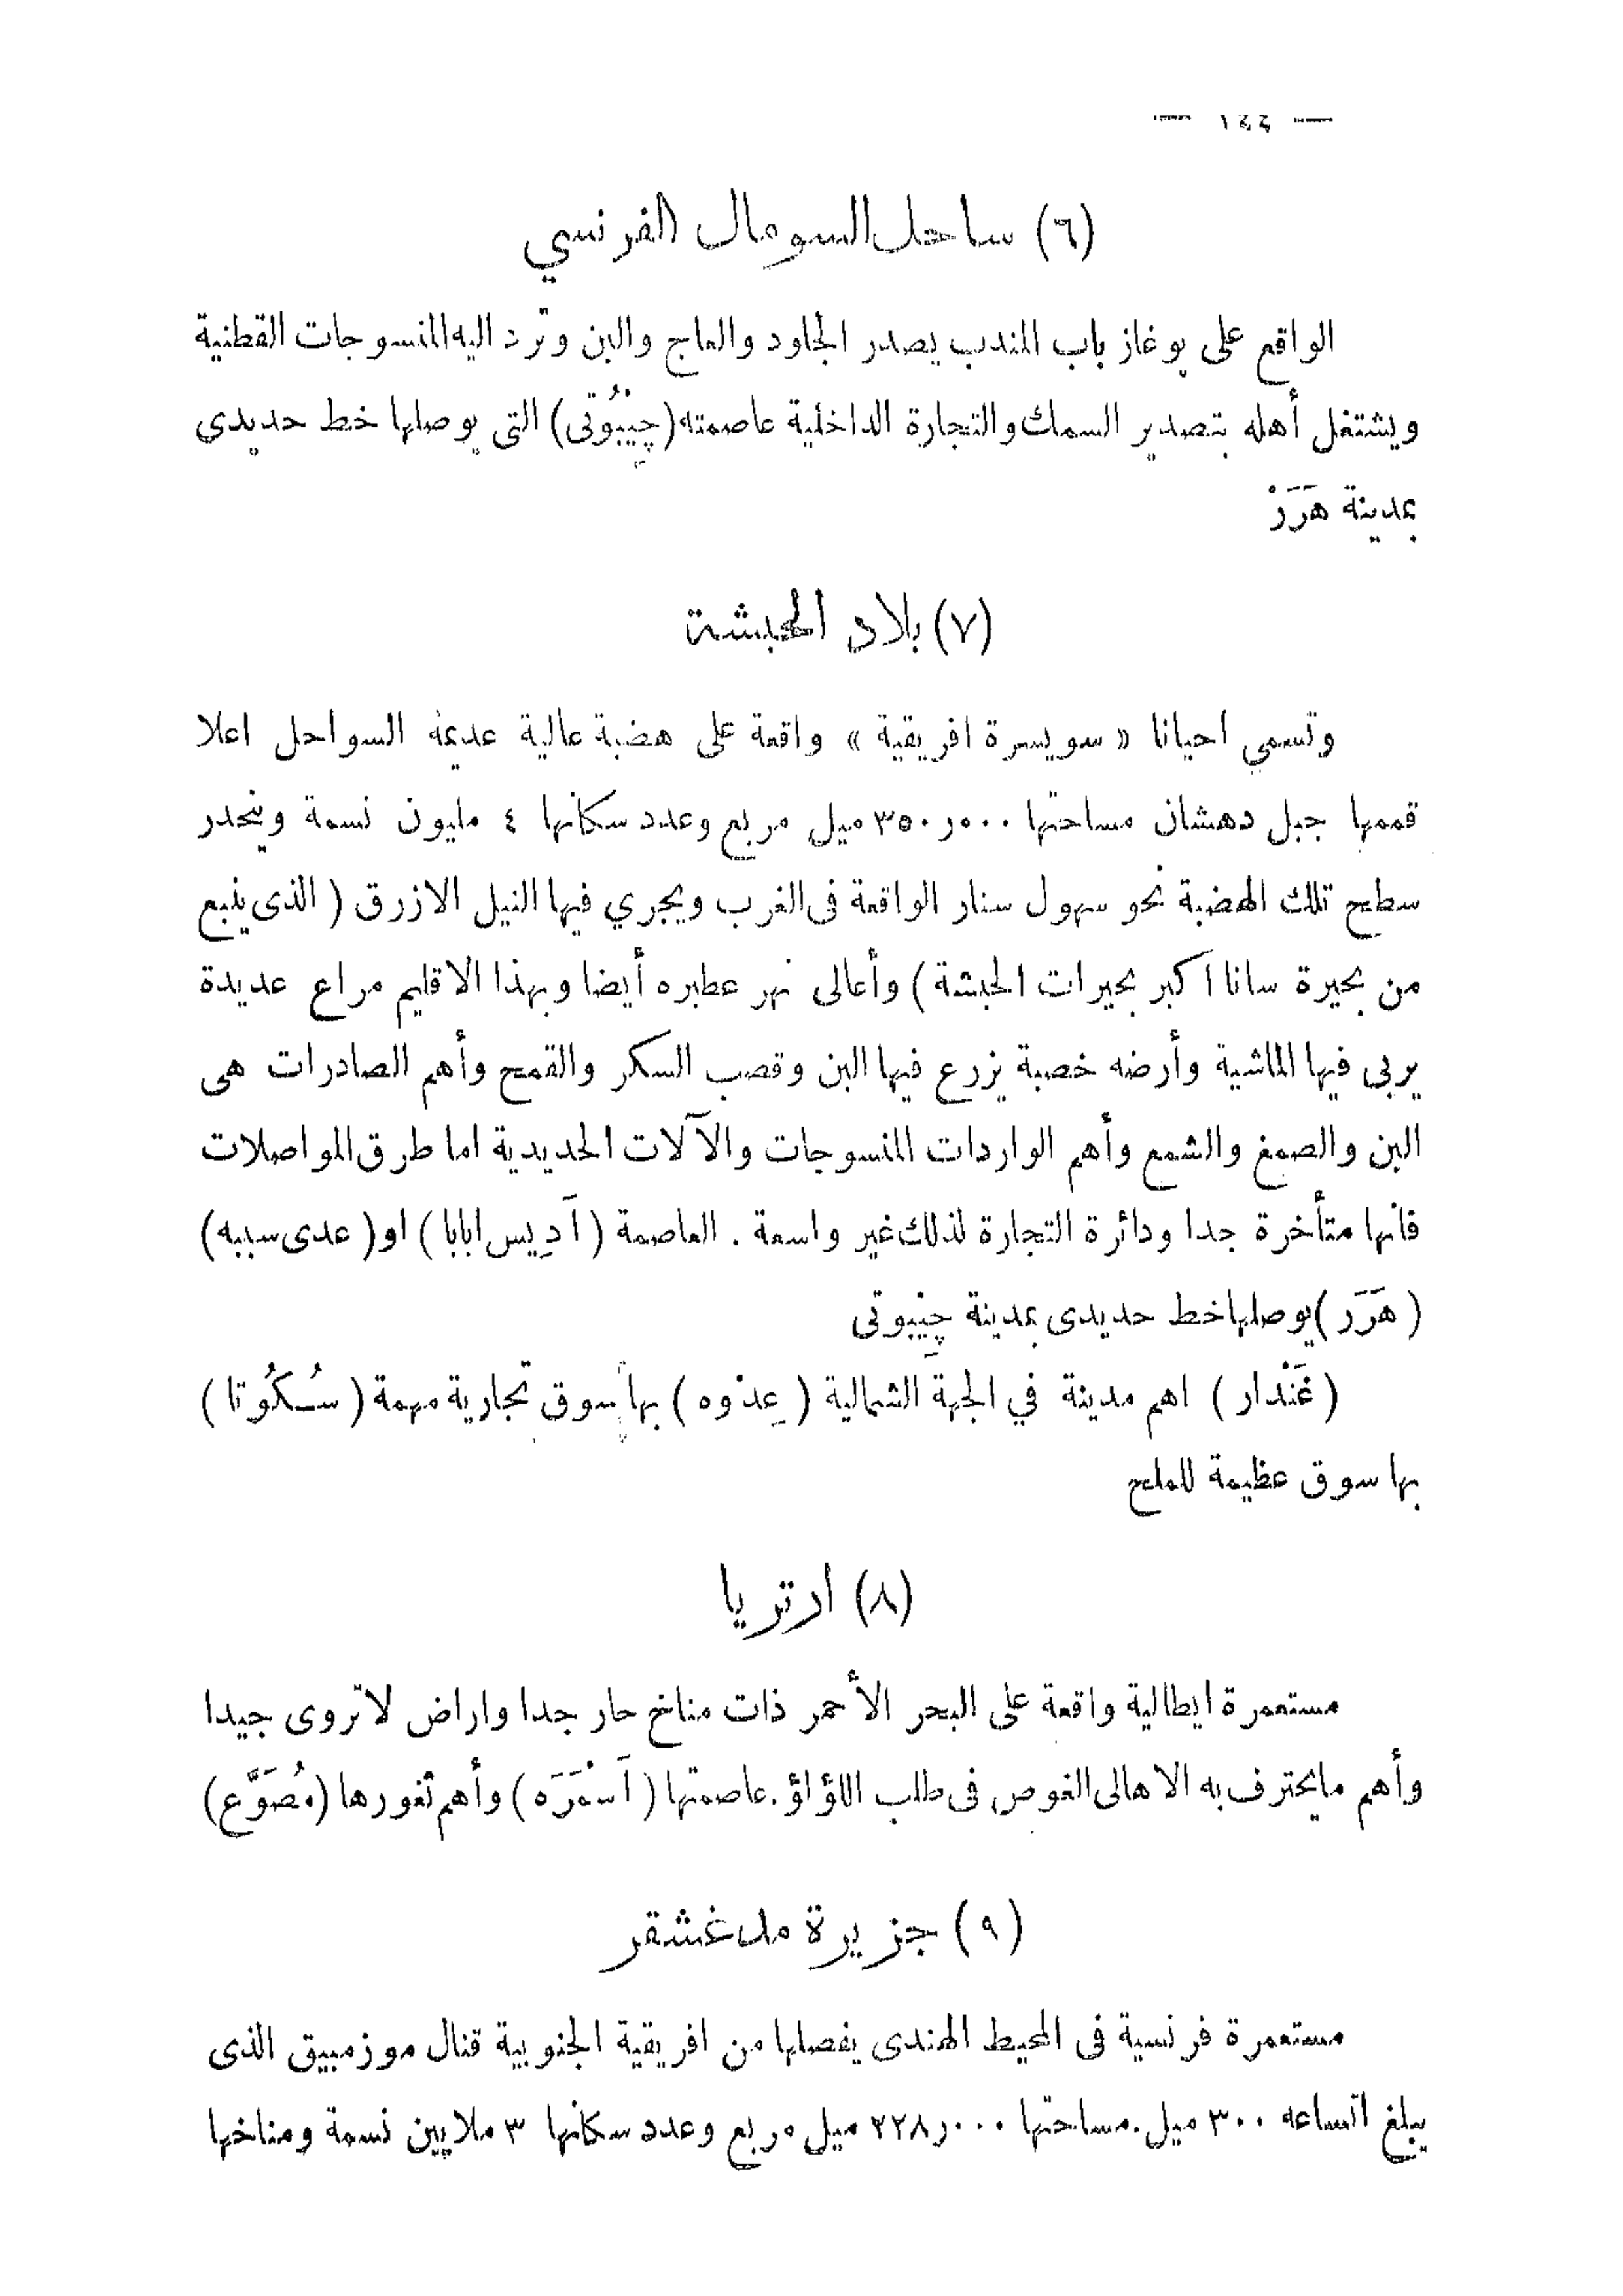 — ١٤٤ —
(٦) ساحل السومال الفرنسي
الواقع على بوغاز باب المندب يصدر الجلود والعاج والبن وترد اليه المنسوجات القطنية
ويشتغل أهله بتصدير السمك والتجارة الداخلية عاصمته (چِيْبُوُتى) التى يوصلها خط حديدى
بمدينة هَرَرْ
(٧) بلاد الحبشة
وتسمى احيانا « سويسرة افريقية » واقعة على هضبة عالية عديمة السواحل اعلا
قممها جبل دهشان مساحتها ٣٥٠ر٠٠٠ ميل مربع وعدد سكانها ٤ مليون نسمة وينحدر
سطح تلك الهضبة نحو سهول سنار الواقعة فى الغرب ويجري فيها النيل الازرق ( الذى ينبع
من بحيرة سانا اكبر بحيرات الحبشة ) وأعالى نهر عطبره أيضا وبهذا الاقليم مراع عديدة
يربى فيها الماشية وأرضه خصبة يزرع فيها البن وقصب السكر والقمح وأهم الصادرات هى
البن والصمغ والشمع وأهم الواردات المنسوجات والآلات الحديدية اما طرق المواصلات
فانها متأخرة جدا ودائرة التجارة لذلك غير واسعة . العاصمة ( آدِيس ابابا ) او ( عدى سببه )
( هَرَر ) يوصلها خط حديدى بمدينة چِيْبوتى
( غَنْدار ) اهم مدينة في الجهة الشمالية ( عِدْوه ) بها سوق تجارية مهمة ( سُكُوتا )
بها سوق عظيمة للملح
(٨) ارتريا
مستعمرة ايطالية واقعة على البحر الأحمر ذات مناخ حار جدا واراض لا تروى جيدا
وأهم مايحترف به الاهالى الغوص فى طلب اللؤلؤ. عاصمتها ( آسْمَرَه ) وأهم ثغورها (مُصَوَّع)
(٩) جزيرة مدغشقر
مستعمرة فرنسية فى المحيط الهندى يفصلها من افريقية الجنوبية قنال موزمبيق الذى
يبلغ اتساعه ٣٠٠ ميل. مساحتها ٢٢٨ر٠٠٠ ميل مربع وعدد سكانها ٣ ملايين نسمة ومناخها